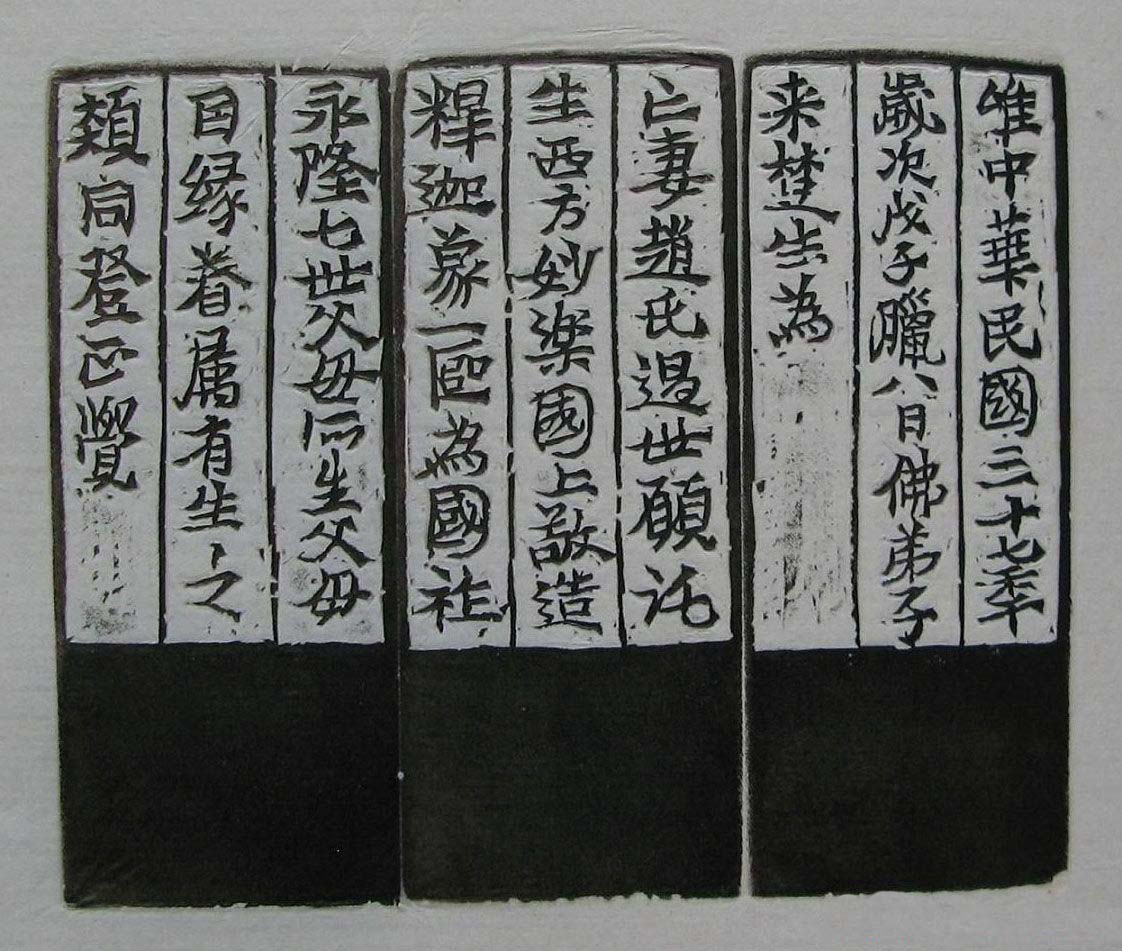 惟中華民國三十七季
歲次戊子臘八日佛弟子
来楚生為
亡妻趙氏過世願託
生西方妙樂國土敬造
釋迦象一區為國祚
永隆七世父母所生父母
因緣眷属有生之
類同登正覺